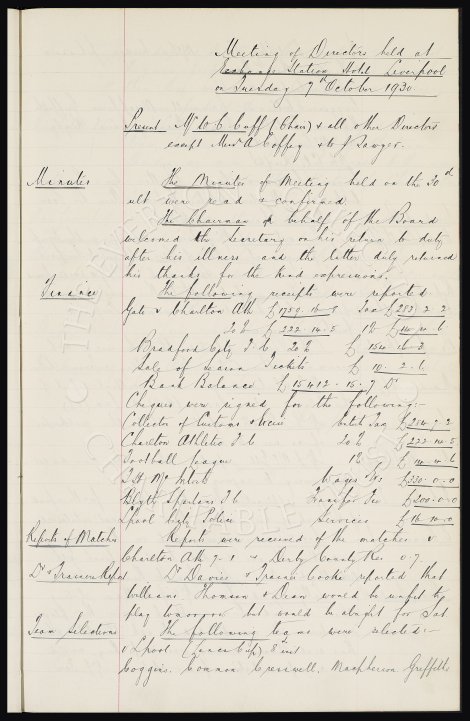 Meeting of Directors held at
Exchange Station Hotel Liverpool
on Tuesday 7th October 1930.
Present Mr W C Cuff (Chair) & all other Directors
except Messrs A Coffey & J Sawyer.
Minutes The Minutes of Meeting held on the 30th
ult were read & confirmed.
The Chairman on behalf of the Board
welcomed the Secretary on his return to duty
after his illness and the latter duly returned
his thanks for the kind expressions.
Finance The following receipts were reported
Gate v Charlton Ath £1759. 16. 8 Tax £283. 2. 2
20% £222. 14. 5 1% £14. 4. 6
Bradford City F.C. 20% £154. 16. 3
Sale of Season Tickets £10. 2. 6
Bank Balance £15412. 15. 7 Dr
Cheques were signed for the following:-
Collector of Customs & Excise Entert Tax £284. 7. 2
Charlton Athletic F.C. 20% £222. 14. 5
Football League 1% £14. 4. 6
T.H. McIntosh Wages &c £330. 0. 0
Blyth Spartans F.C. Transfer Fee £200. 0. 0
L'pool City Police Services £16. 10. 0
Reports of Matches Reports were received of the matches v
Charlton Ath 7. 1 & Derby County Res 0. 7
Dr & Trainers Report Dr Davies & Trainer Cooke reported that
Williams, Thomson & Dean would be unfit to
play tomorrow but would be alright for Sat
Team Selections The following teams were selected:-
v L'pool (Lancs Cup) 8th inst
Coggins. Common Cresswell. Macpherson Griffiths